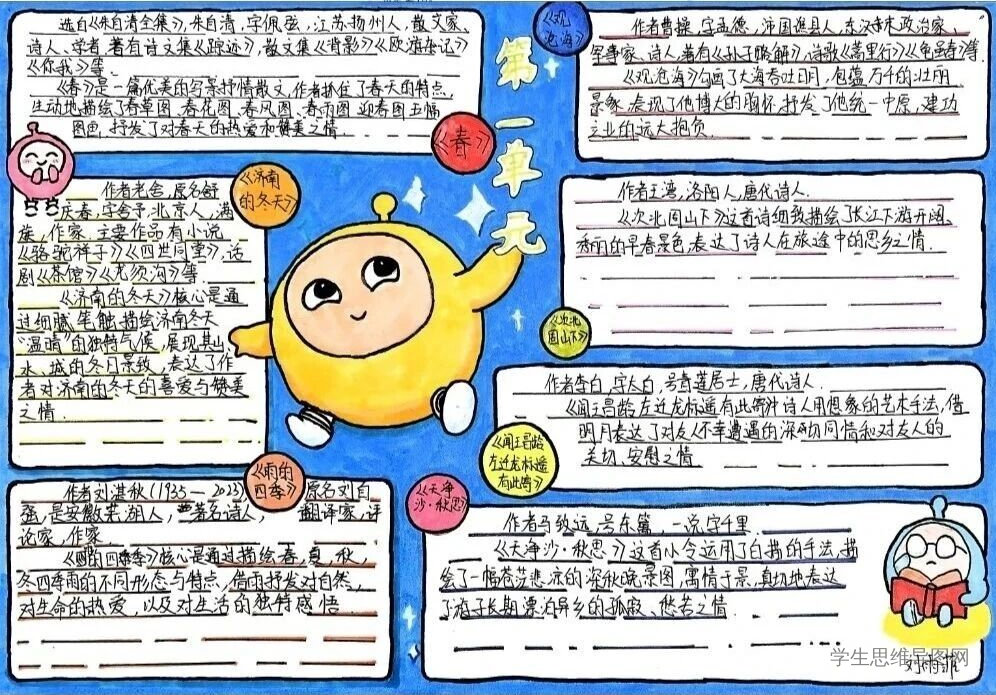 第一单元
《春》
选自《朱自清全集》,朱自清,字佩弦,江苏扬州人,散文家、
诗人、学者,著有诗文集《踪迹》,散文集《背影》《欧游杂记》
《你我》等.
《春》是一篇优美的写景抒情散文,作者抓住了春天的特点,
生动地描绘了春草图.春花图.春风图.春雨图 迎春图五幅
图画,抒发了对春天的热爱和赞美之情
《济南
的冬天》
作者老舍,原名舒
庆春,字舍予,北京人,满
族,作家.主要作品有小说
《骆驼祥子》《四世同堂》,话
剧《茶馆》《龙须沟》等.
《济南的冬天》核心是通
过细腻笔触,描绘济南冬天
“温晴”的独特气候,展现其山
水、城的冬日景致,表达了作
者对济南的冬天的喜爱与赞美
之情.
《雨的
四季》
作者刘湛秋(1935—2023),原名刘自
强,是安徽芜湖人,著名诗人,翻译家,评
论家,作家.
《雨的四季》核心是通过描绘春,夏,秋,
冬四季雨的不同形态与特点,借雨抒发对自然,
对生命的热爱,以及对生活的独特感悟.
《观
沧海》
作者曹操,字孟德,沛国谯县人,东汉末政治家、
军事家、诗人,著有《孙子略解》,诗歌《蒿里行》《龟虽寿》等.
《观沧海》勾画了大海吞吐日月,包蕴万千的壮丽
景象,表现了他博大的胸怀,抒发了他统一中原,建功
立业的远大抱负.
《次北
固山下》
作者王湾,洛阳人,唐代诗人.
《次北固山下》这首诗细致描绘了长江下游开阔、
秀丽的早春景色,表达了诗人在旅途中的思乡之情.
《闻王昌龄
左迁龙标遥
有此寄》
作者李白,字太白,号青莲居士,唐代诗人.
《闻王昌龄左迁龙标遥有此寄》诗人用想象的艺术手法,借
明月表达了对友人不幸遭遇的深切同情和对友人的
关切、安慰之情.
《天净
沙·秋思》
作者马致远,号东篱,一说字千里.
《天净沙·秋思》这首小令运用了白描的手法,描
绘了一幅苍茫悲凉的深秋晚景图,寓情于景,真切地表达
了游子长期漂泊异乡的孤寂、愁苦之情.
学生思维导图网
刘雨菲